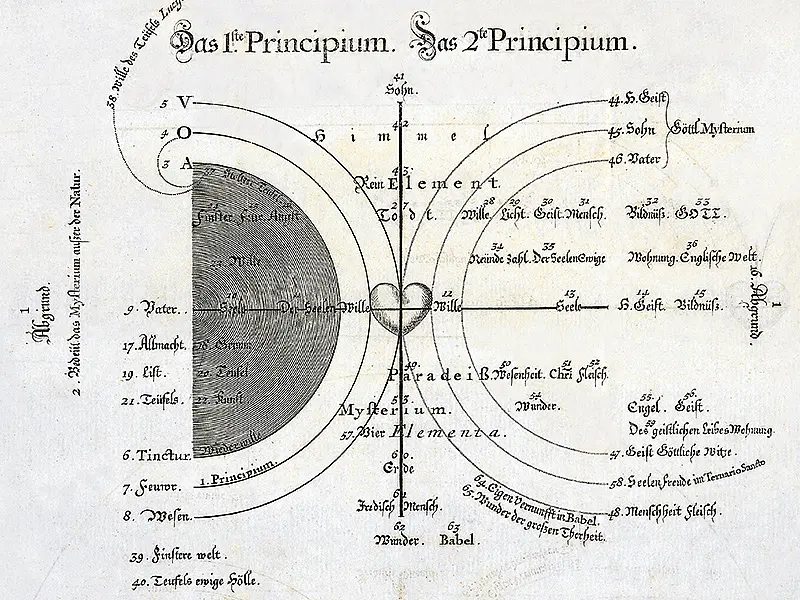 Das 1.ste Principium. Das 2te Principium.
38. Wille des Teüfels
41
Sohn.
5 V
4 O
3 A
42
Himmel
44. H. Geist
45. Sohn
46. Vater
Göttl. Mysterium
43
Rein Element.
27
Todt.
28 29 30 31 32 33
Wille. Licht. Geist. Mensch. Bildnüß. GOTT.
Finster Feür Angst
34 35 36
Neünde Zahl. Der Seelen Ewige Wohnung. Englische Welt.
23. Wille
1
Abgrund.
2. Bedeüt das Mysterium außer der Natur.
9. Vater.
10
Seele
Der Seelen Wille
12
Wille
13
Seele
14
H. Geist.
15
Bildnüß.
16. Abgrund.
1
17. Allmacht. 18. Grimm
19. List. 20. Teufel
21. Teüfels. 22. Kunst
49.
Paradeiß.
50
Wesenheit.
51 52
Chri Fleisch.
53
Mysterium.
54
Wunder.
55. 56.
Engel. Geist.
59
Des geistlichen Leibes Wohnung.
57. Vier Elementa.
6. Tinctur
7. Feuwr.
8. Wesen.
1. Principium.
47. Geist Göttliche Witze.
58. Seelen freude in Ternario Sancto
48. Menschheit Fleisch.
60.
Erde
61
Irdisch Mensch.
62
Wunder.
63
Babel.
64. Eigen Vernunfft in Babel.
65. Wunder der großen Thorheit.
39. Finstere welt.
40. Teufels ewige Hölle.